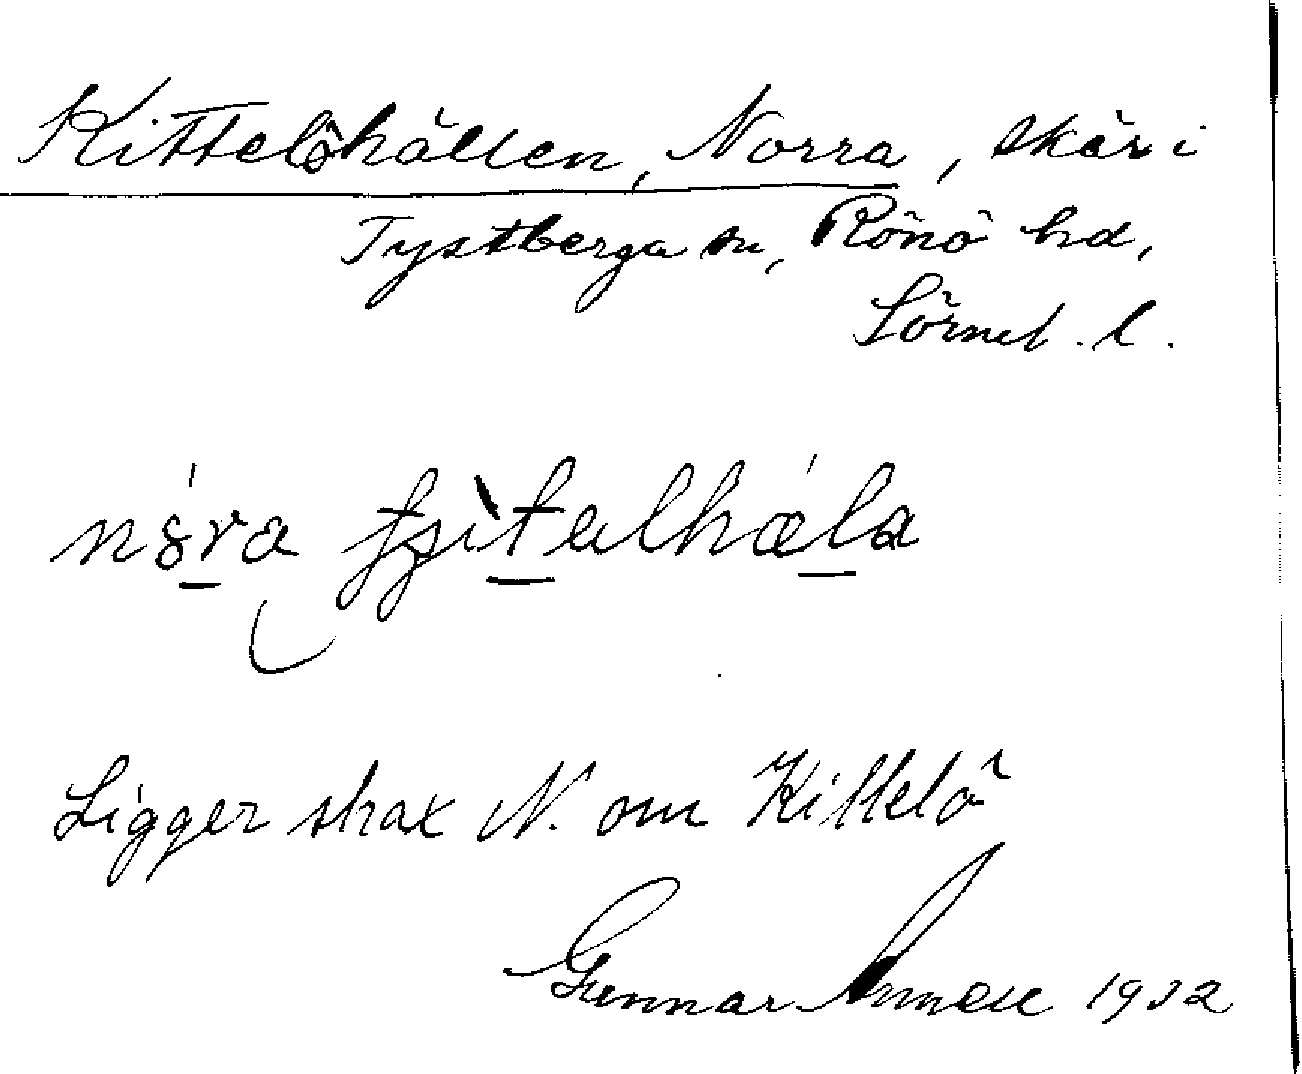 Kittelöhällen, Norra, skär i
Tystberga sn, Rönö hd,
Sörml. l.
Ligger strax N. om Kittelö
Gunnar 1932